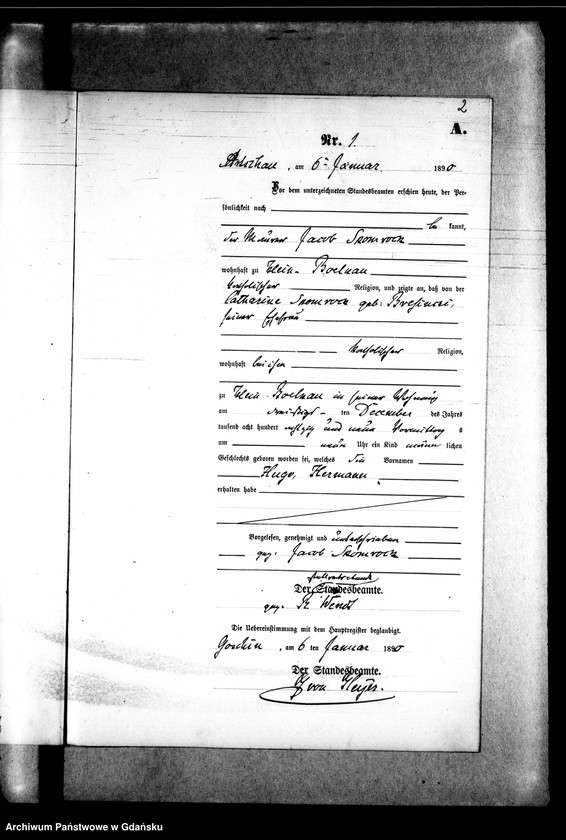 2
A.
Nr. 1
am 6ten Januar 1890
Vor dem unterzeichneten Standesbeamten erschien heute, der Per-
sönlichkeit nach
be kannt,
der Maurer Jacob Skomrock
wohnhaft zu Klein-Boelkau
katholischer Religion, und zeigte an, daß von der
Catharine Skomrock geb: Bresinski,
seiner Ehefrau
katholischer Religion,
wohnhaft bei ihm
zu Klein-Boelkau in seiner Wohnung
am dreißigst- ten December des Jahres
tausend acht hundert achtzig und neun Vormittag s
um neun Uhr ein Kind männ lichen
Geschlechts geboren worden sei, welches die Vornamen
Hugo, Hermann
erhalten habe
Vorgelesen, genehmigt und unterschrieben
gez. Jacob Skomrock
stellvertretende
Der Standesbeamte.
gez. Wendt
Die Uebereinstimmung mit dem Hauptregister beglaubigt.
am 6 ten Januar 1890
Der Standesbeamte.
von Heyer.
Archiwum Państwowe w Gdańsku